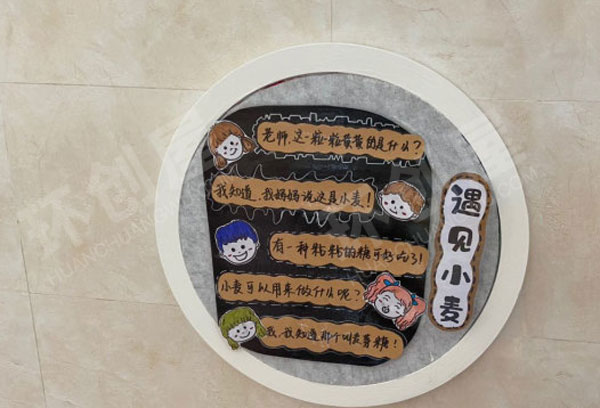 老师,这一粒粒黄黄的是什么?
我知道,我妈妈说这是小麦!
有一种粘粘的糖可好吃了!
小麦可以用来做什么呢?
我,我知道那个叫麦芽糖!
遇见小麦